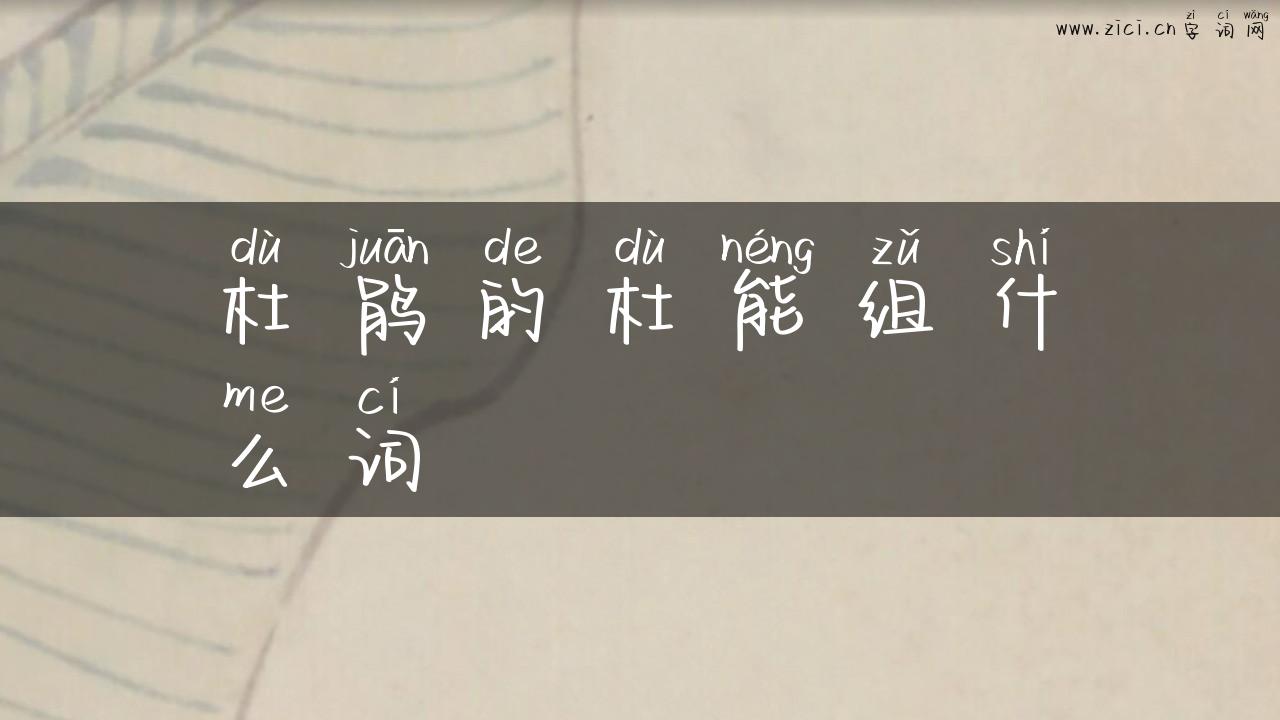 zì cí wǎng
www.zici.cn 字词网
dù juān de dù néng zǔ shí
杜鹃的杜能组什
me cí
么词